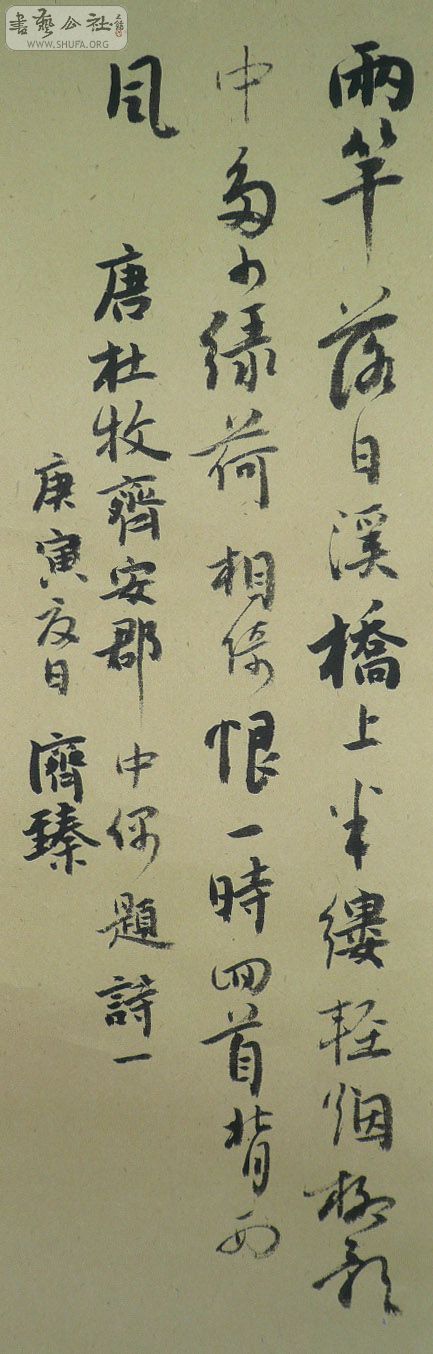 兩竿落日溪橋上半縷輕烟柳影
中多少綠荷相倚恨一時回首背西
風
唐杜牧齊安郡中偶題詩一
庚寅夏日 濟臻
書藝公社
WWW.SHUFA.ORG